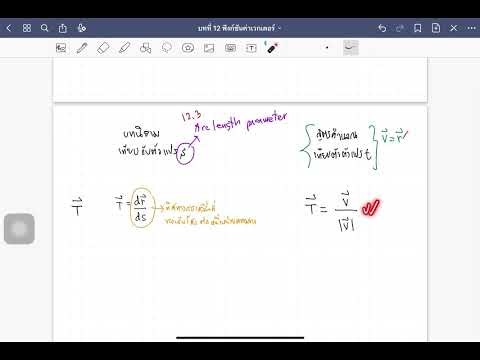 บทที่ 12 ฟังก์ชันค่าเวกเตอร์
12.3
Arc length parameter
บทนิยาม
เทียบกับตัวแปร s
สูตรคำนวณ
เทียบตัวแปร t
v⃗ = r⃗'
T⃗
T⃗ = dr⃗/ds
T⃗ = v⃗/|v⃗|